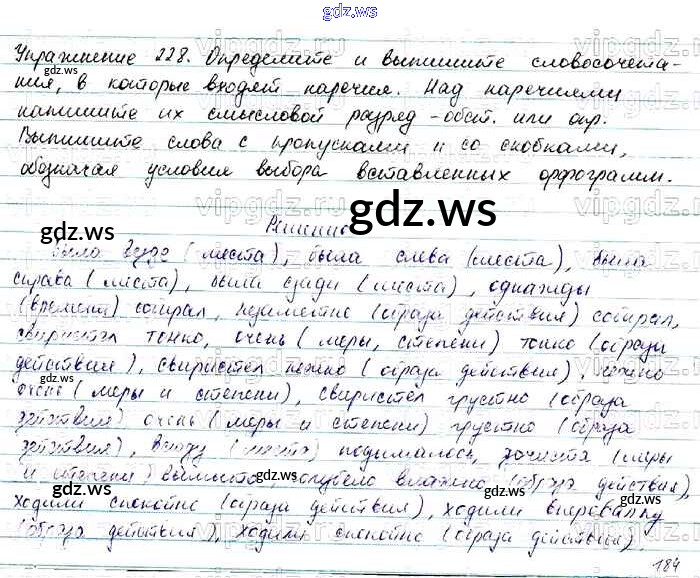 gdz.ws
Упражнение 228. Определите и выпишите словосочета-
ния, в которые входят наречия. Над наречиями
напишите их смысловой разряд - обст. или опр.
Выпишите слова с пропусками и со скобками,
обозначая условия выбора вставленных орфограмм.
gdz.ws
Решение
была везде (места), была слева (места), была
справа (места), были сзади (места), однажды
(времени) собирал, незаметно (образа действия) собирал,
свиристел тонко, очень (меры, степени) тонко (образа
действия), свиристел нежно (образа действия), нежно
очень (меры и степени), свиристел грустно (образа
действия) очень (меры и степени) грустно (образа
действия), всюду (места) поднималось, дочиста (меры
и степени) вымыто, влажно (образа действия),
ходили спокойно (образа действия), ходили вперевалку
(образа действия), ходили спокойно (образа действия).
184